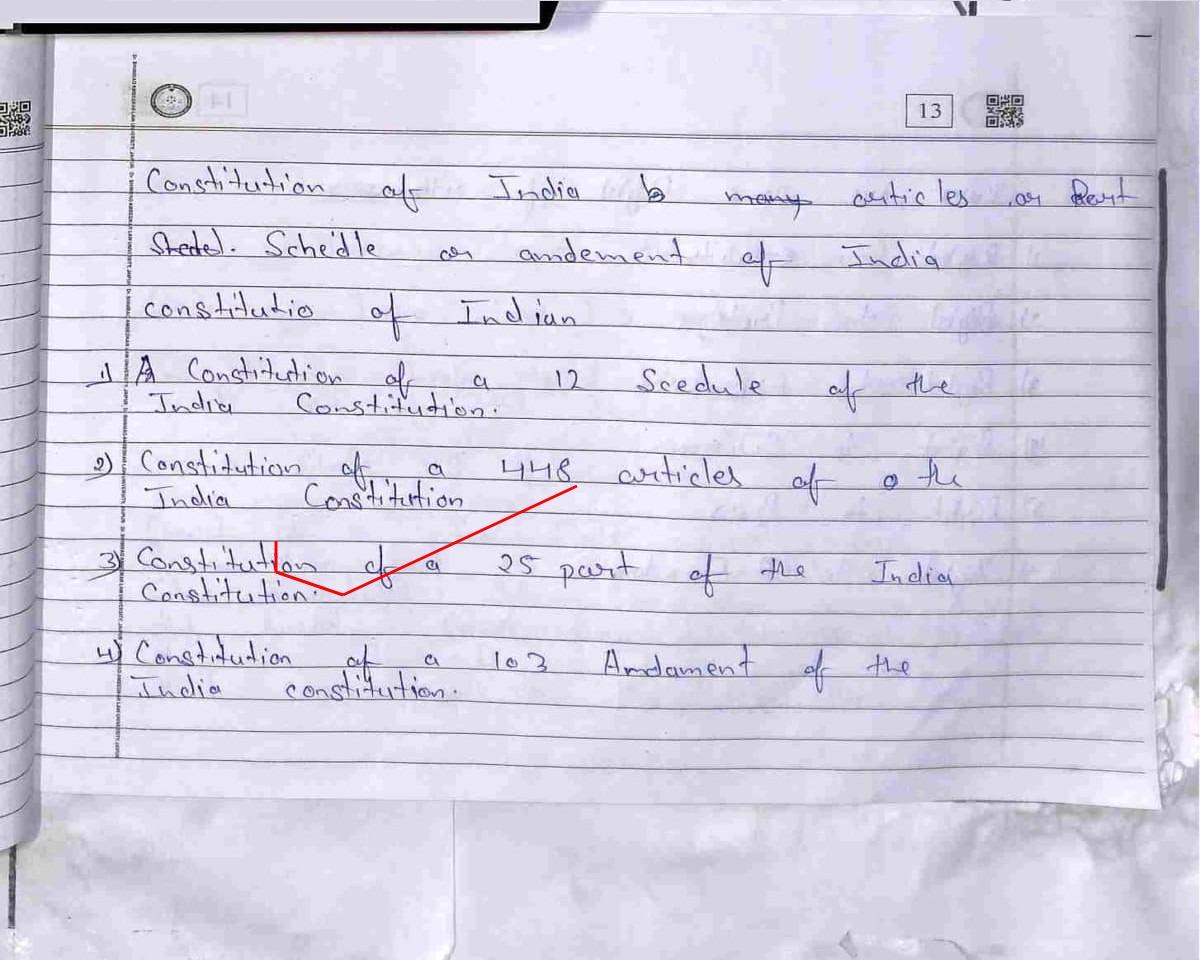 13
Constitution of India b many articles or Part
Stedel. Schedle or amdement of India
constitutio of Indian
1) A Constitution of a 12 Scedule of the
India Constitution.
2) Constitution of a 448 articles of o the
India Constitution
3) Constitution of a 25 part of the India
Constitution.
4) Constitution of a 103 Amdament of the
India constitution.